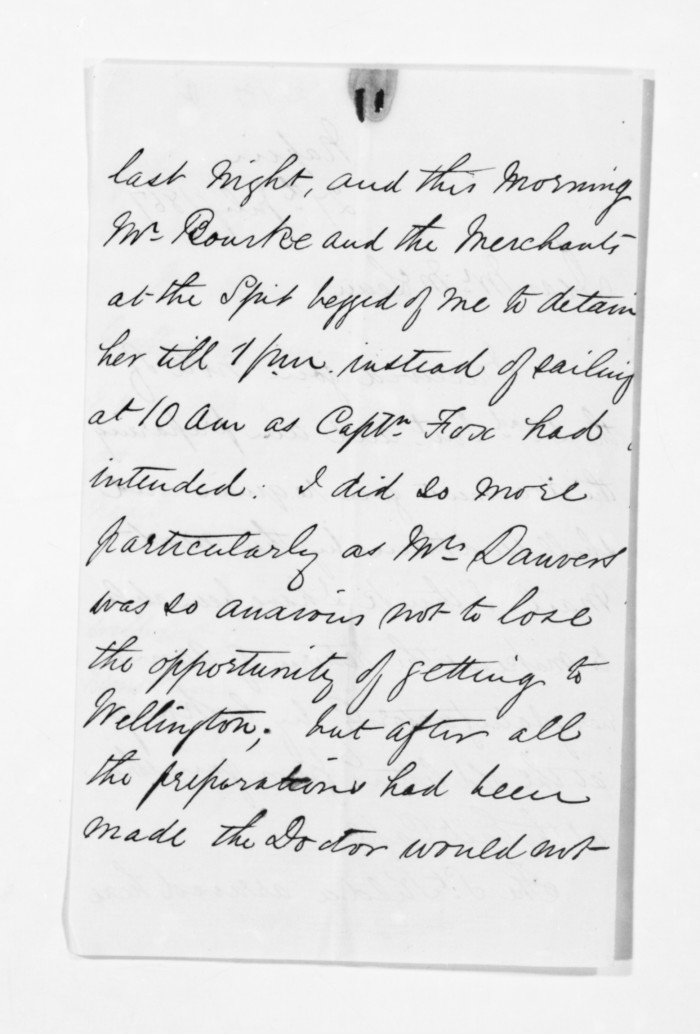 last night, and this Morning
Mr. Bourke and the Merchants
at the Spit begged of me to detain
her till 1 p.m. instead of sailing
at 10 am as Captn Fox had
intended. I did so more
particularly as Mrs Danvers
was so anxious not to lose
the opportunity of getting to
Wellington; but after all
the preparations had been
made the Doctor would not